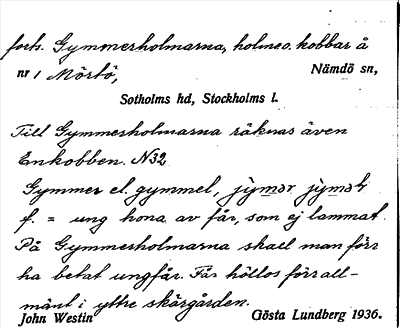 forts. Gymmerholmarna, holme o. kobbar å
nr 1 Mörtö, Nämdö sn,
Sotholms hd, Stockholms l.
Till Gymmerholmarna räknas även
Enkobben. N32
Gymmer el. gymmel, jy̆mər jy̆məɫ
f. = ung hona av får, som ej lammat.
På Gymmerholmarna skall man förr
ha betat ungfår. Får höllos förr all-
mänt i yttre skärgården.
John Westin Gösta Lundberg 1936.